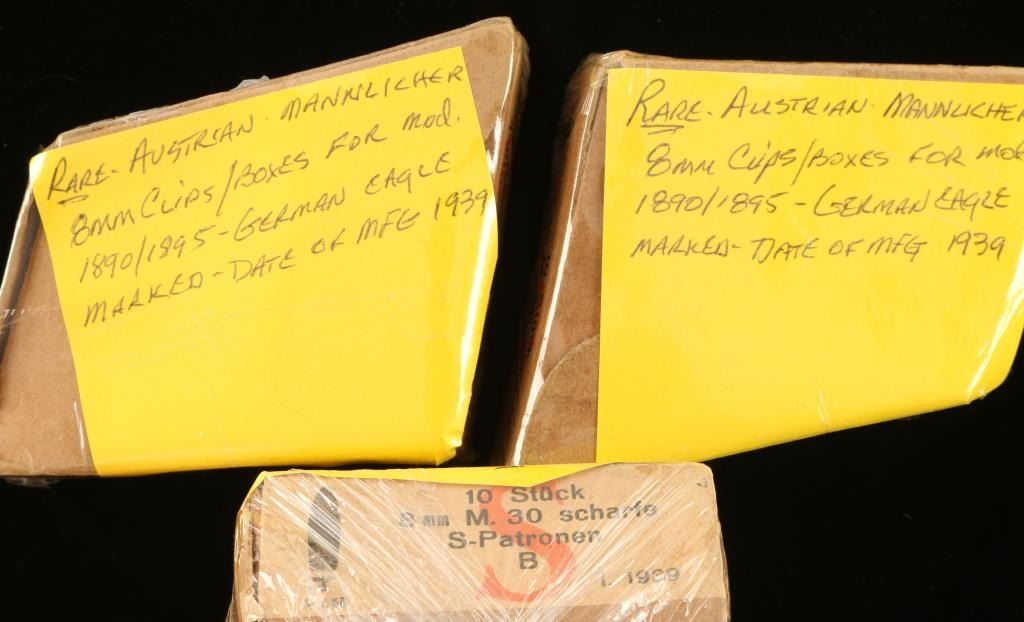 RARE - AUSTRIAN - MANNLICHER
8mm CLIPS/BOXES FOR mod.
1890/1895 - GERMAN EAGLE
MARKED - DATE OF MFG 1939
RARE - AUSTRIAN - MANNLICHER
8mm CLIPS/BOXES FOR mod
1890/1895 - GERMAN EAGLE
MARKED - DATE OF MFG 1939
10 Stück
8 mm M. 30 scharfe
S-Patronen
B
S
1. 1939